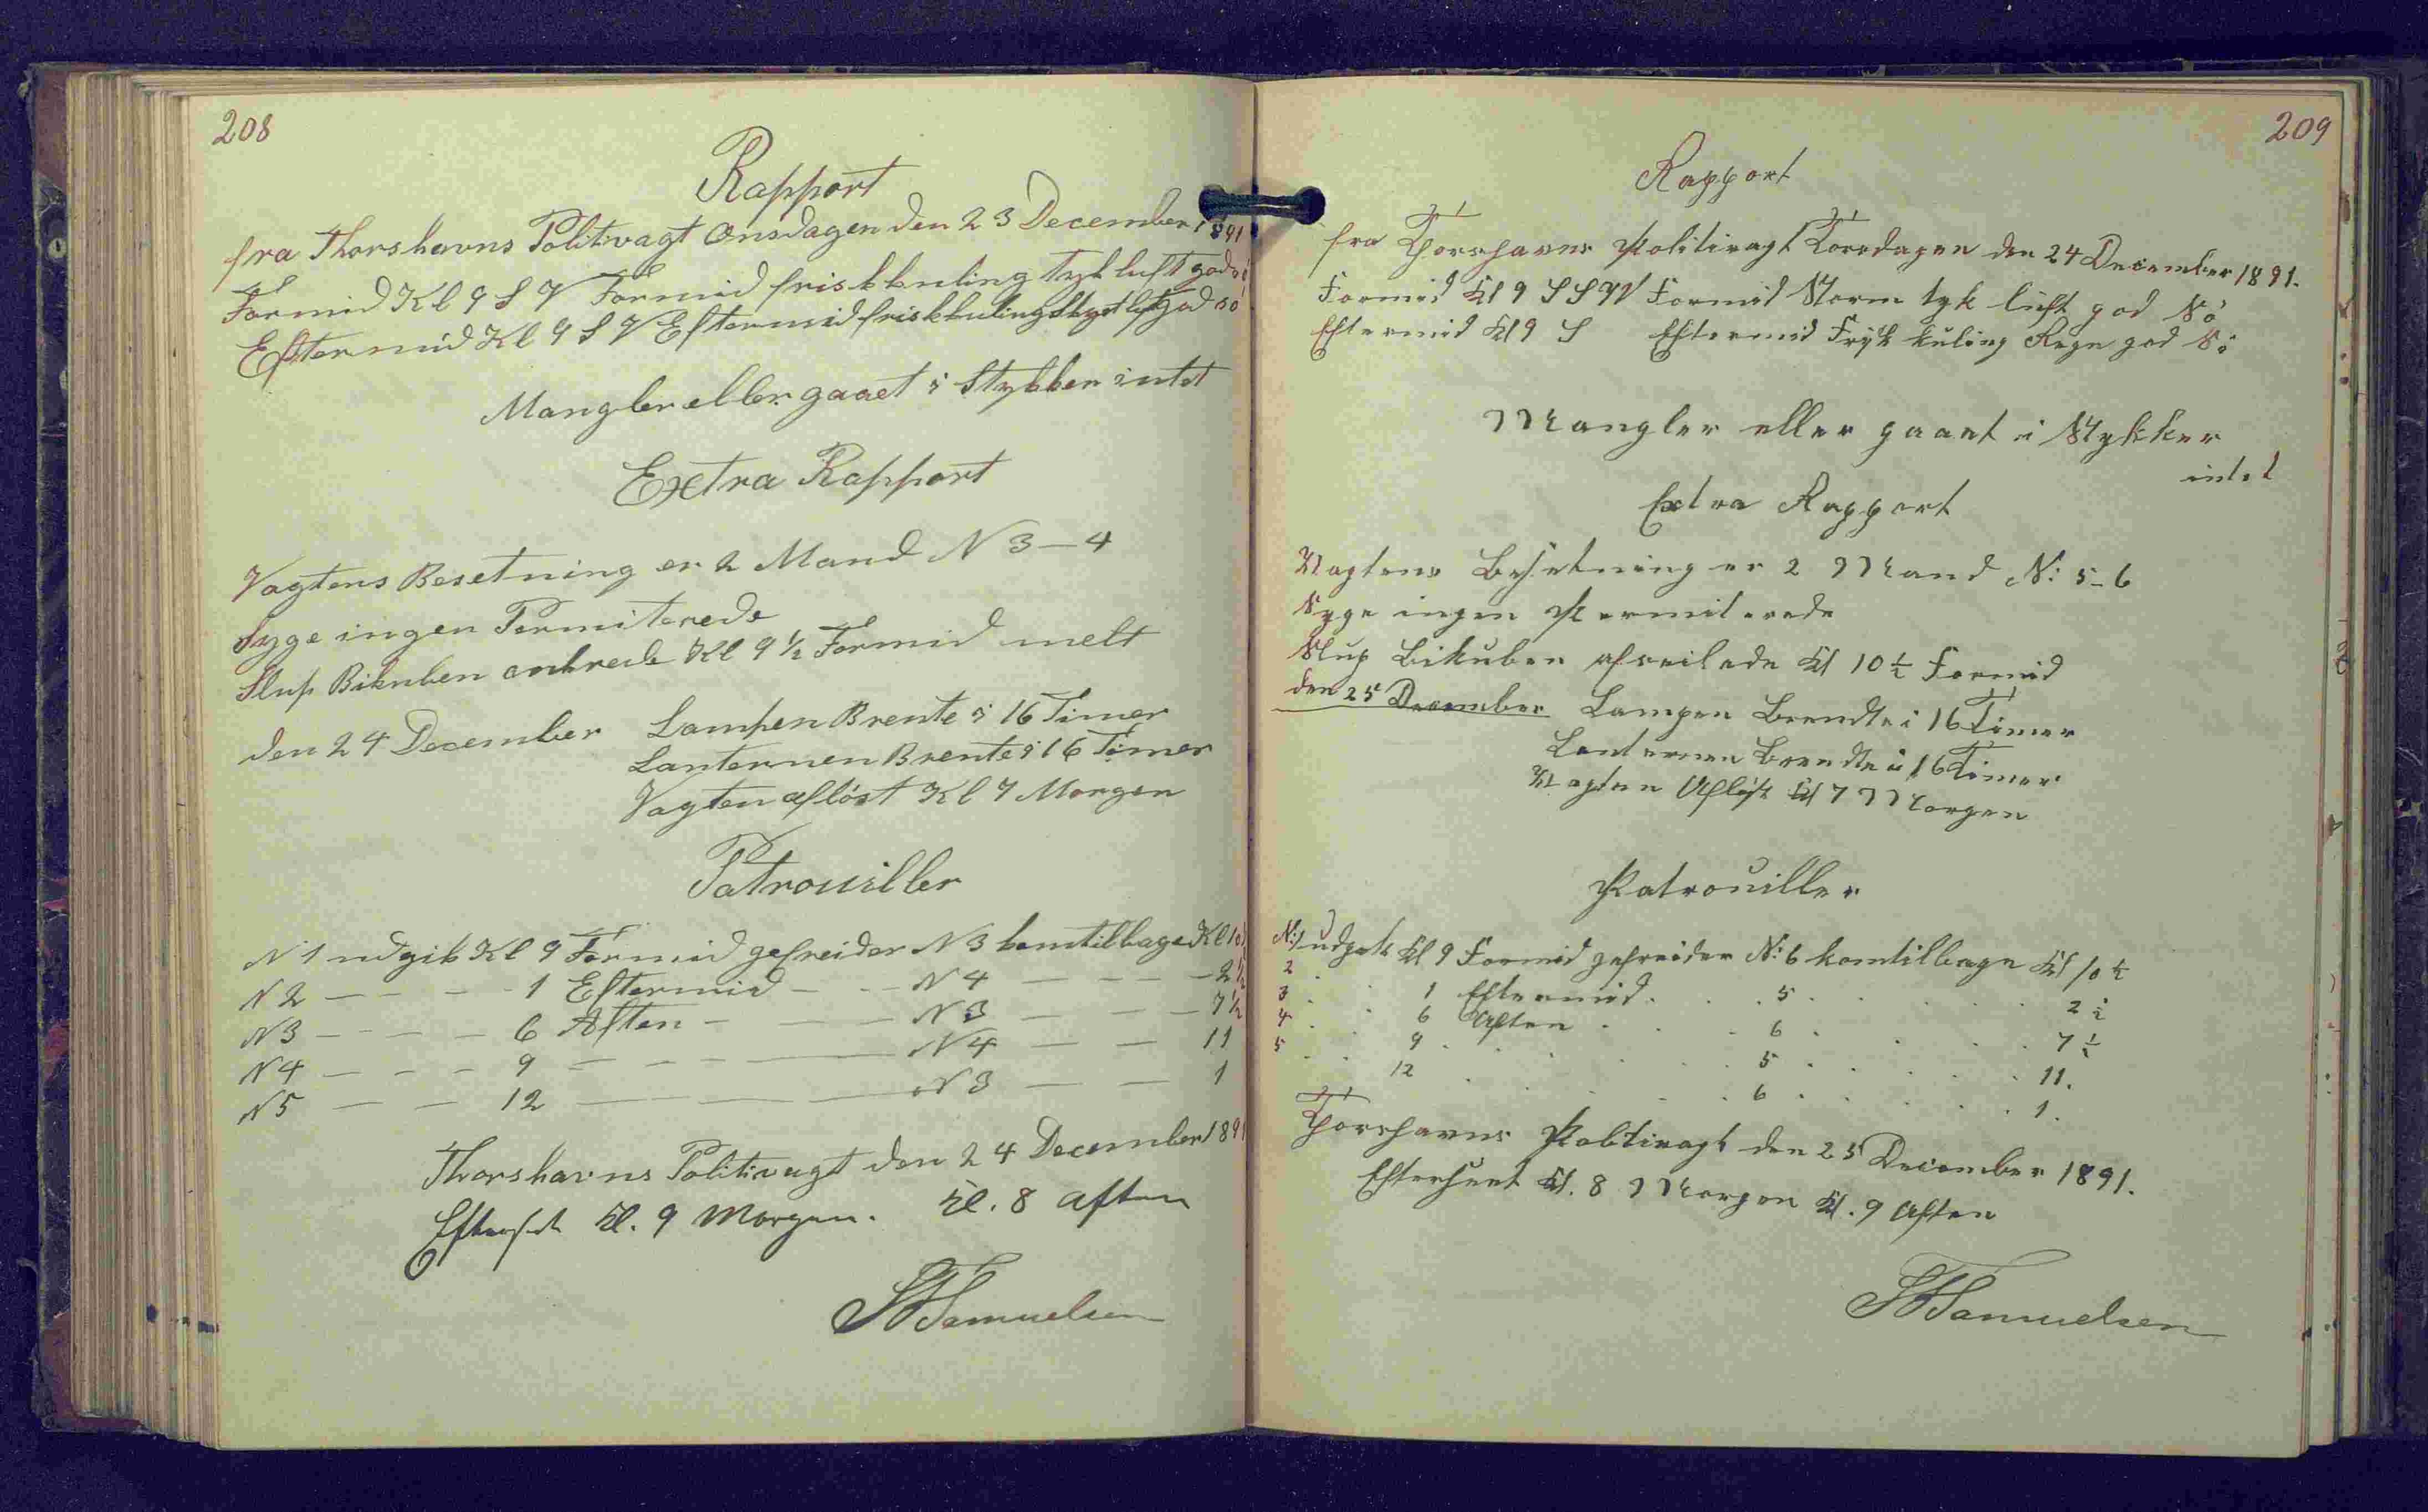 208
Rapport
fra Thorshavns Politivagt Onsdagen den 23 December 1891
Formid Kl 9 S V Formid frisk kuling tyk luft god sö
Eftermid Kl 9 S V Eftermid frisk kuling Skyet luft god sö
Mangler eller gaaet i Stykker intet
Extra Rapport
Vagtens Besetning er 2 Mand N 3–4
Syge ingen Permiterede
Slup Bikuben ankrede Kl 9 1/2 Formid melt
den 24 December Lampen Brente i 16 Timer
Lanternen Brente i 16 Timer
Vagten aflöst Kl 7 Morgen
Patrouiller
N 1 udgik Kl 9 Formid gefreider N 3 komtilbage Kl 10
N 2 — — — 1 Eftermid — — N 4 — — — 2 1/2
N 3 — — — 6 Aften — — N 3 — — — 7 1/2
N 4 — — — 9 — — — N 4 — — 11
N 5 — — 12 — — N 3 — — 1
Thorshavns Politivagt den 24 December 1891
Efterset Kl. 9 Morgen. Kl. 8 Aften
Samuelsen
209
Rapport
fra Thorshavns Politivagt Torsdagen den 24 December 1891.
Formid Kl 9 S S W Formid Storm tyk luft god Sö
Eftermid Kl 9 S Eftermid Frisk kuling Regn god Sö
Mangler eller gaaet i Stykker
intet
Extra Rapport
Vagtens Besetning er 2 Mand N: 5–6
Syge ingen Permiterede
Slup Bikuben afseilede Kl 10 1/2 Formid
den 25 December Lampen Brendte i 16 Timer
Lanternen Brendte i 16 Timer
Vagten Aflöst Kl 7 Morgen
Patrouiller
N: 1 udgik Kl 9 Formid gefreider N: 6 komtilbage Kl 10 1/2
2 . . 1 Eftermid . . . 5 . . . . 2 1/2
3 . . 6 Aften . . . 6 . . . . 7 1/2
4 . . 9 . . . . 5 . . . . 11.
5 . . 12 . . . . 6 . . . . 1.
Thorshavns Politivagt den 25 December 1891.
Efterseet Kl. 8 Morgen Kl. 9 Aften
Samuelsen